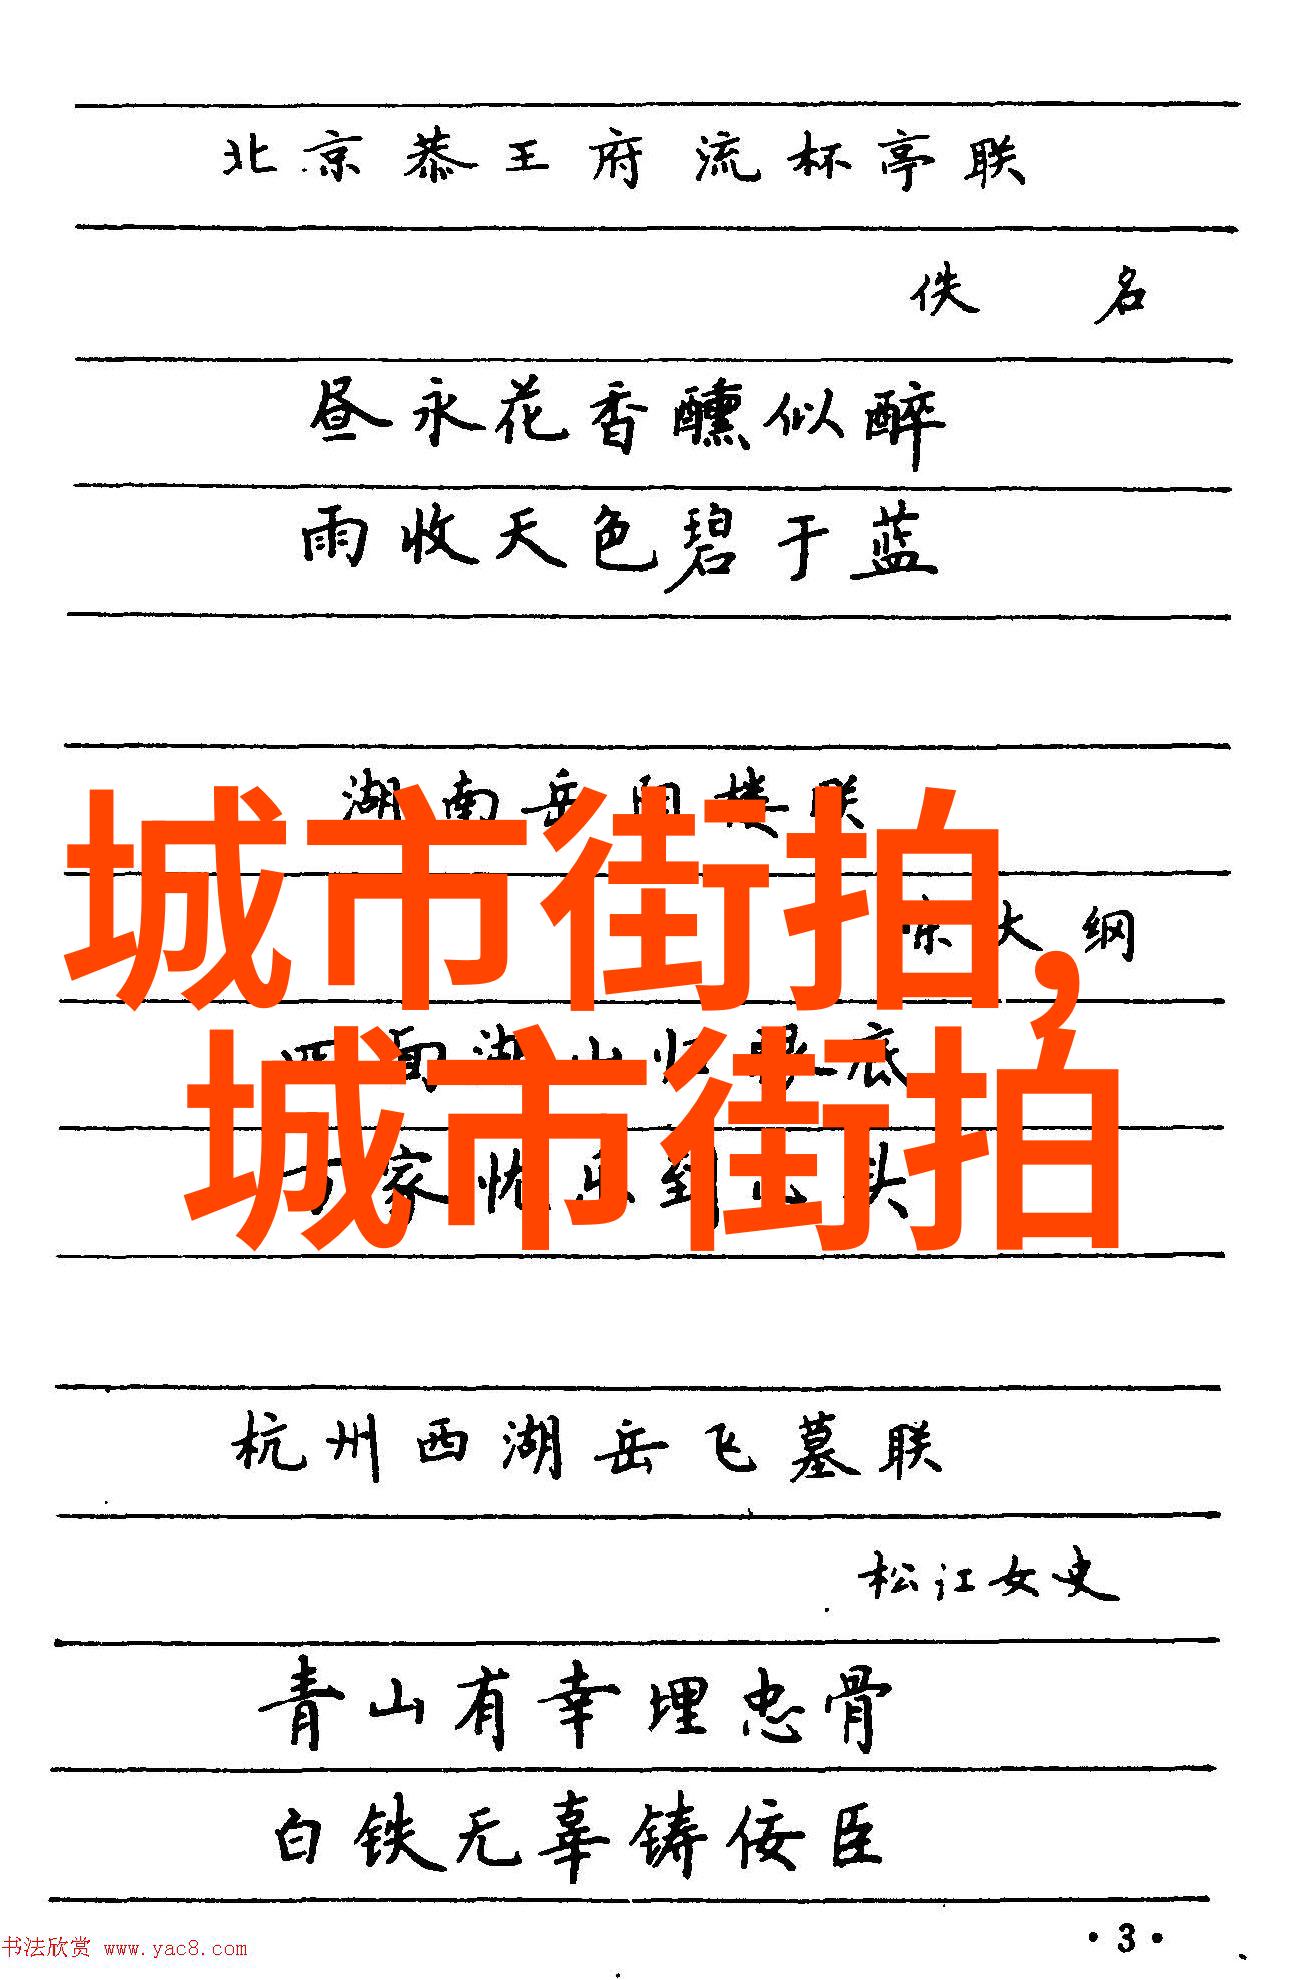 北京恭王府流杯亭联
佚 名
昼永花香醺似醉
雨收天色碧于蓝
湖南岳阳楼联
大纲
城市街拍,
面湖山归眼底
城市街拍
家忧乐到头
杭州西湖岳飞墓联
松江女史
青山有幸埋忠骨
白铁无辜铸佞臣
·3·
书法欣赏 www.yac8.com